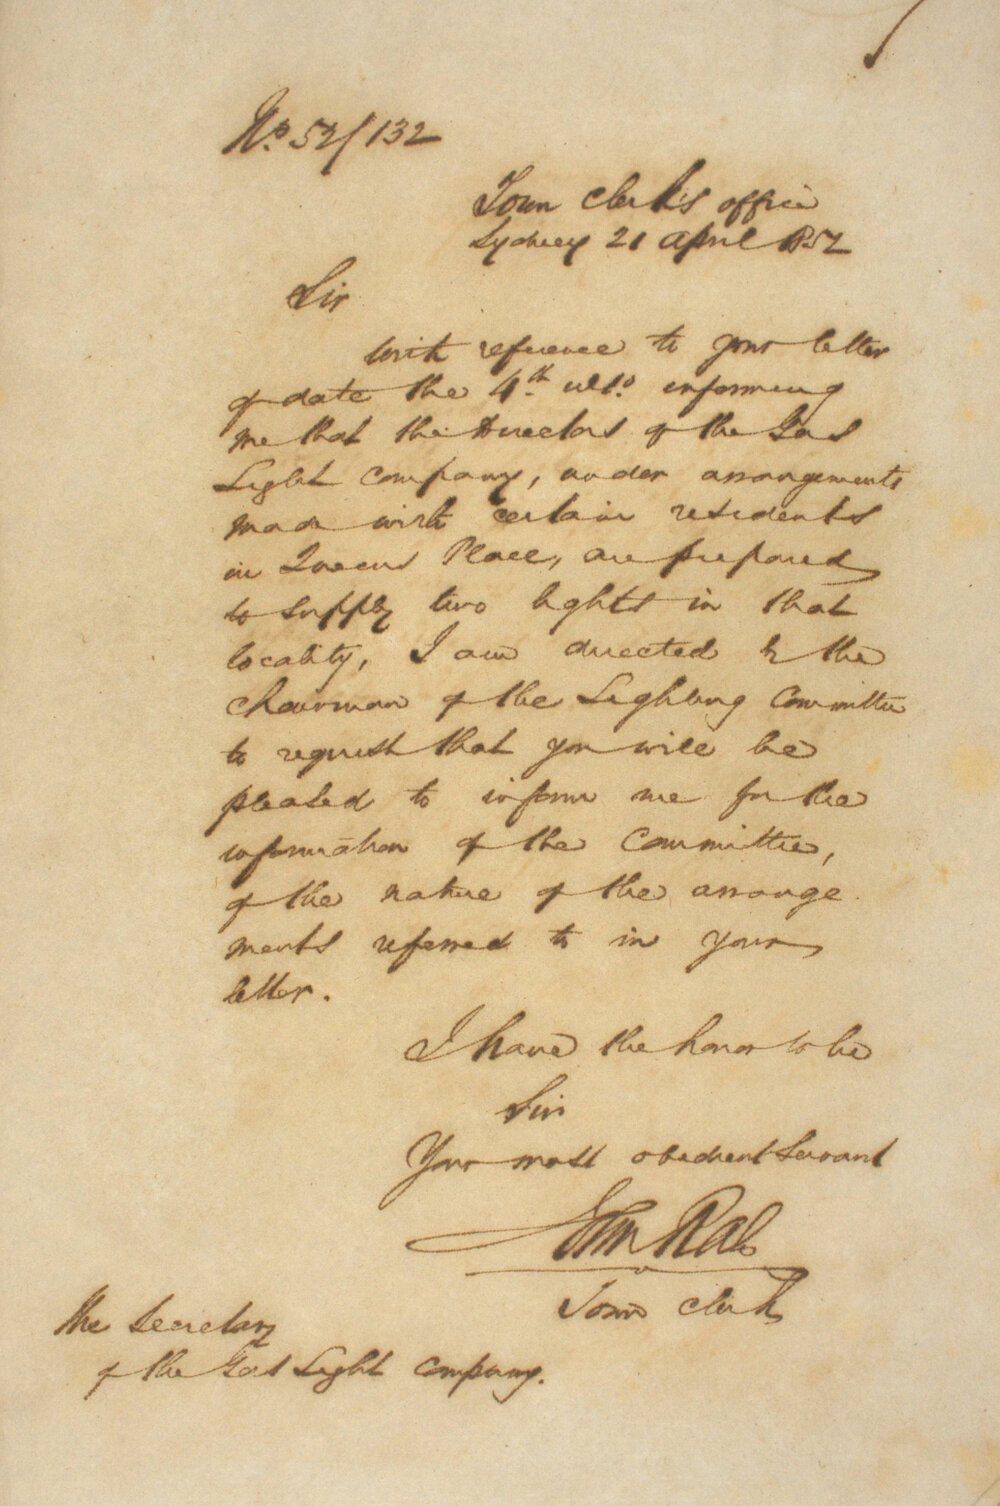 No. 52/132
Town Clerk's office
Sydney 21 April 1852
Sir
With reference to your letter
of date the 4th ulto. informing
me that the Directors of the Gas
Light Company, under arrangements
made with certain residents
in Queens Place, are prepared
to supply two lights in that
locality, I am directed by the
Chairman of the Lighting Committee
to request that you will be
pleased to inform me for the
information of the Committee,
of the nature of the arrange
ments referred to in your
letter.
I have the honor to be
Sir
Your most obedient Servant
John Rae
Town Clerk
The Secretary
of the Gas Light Company.